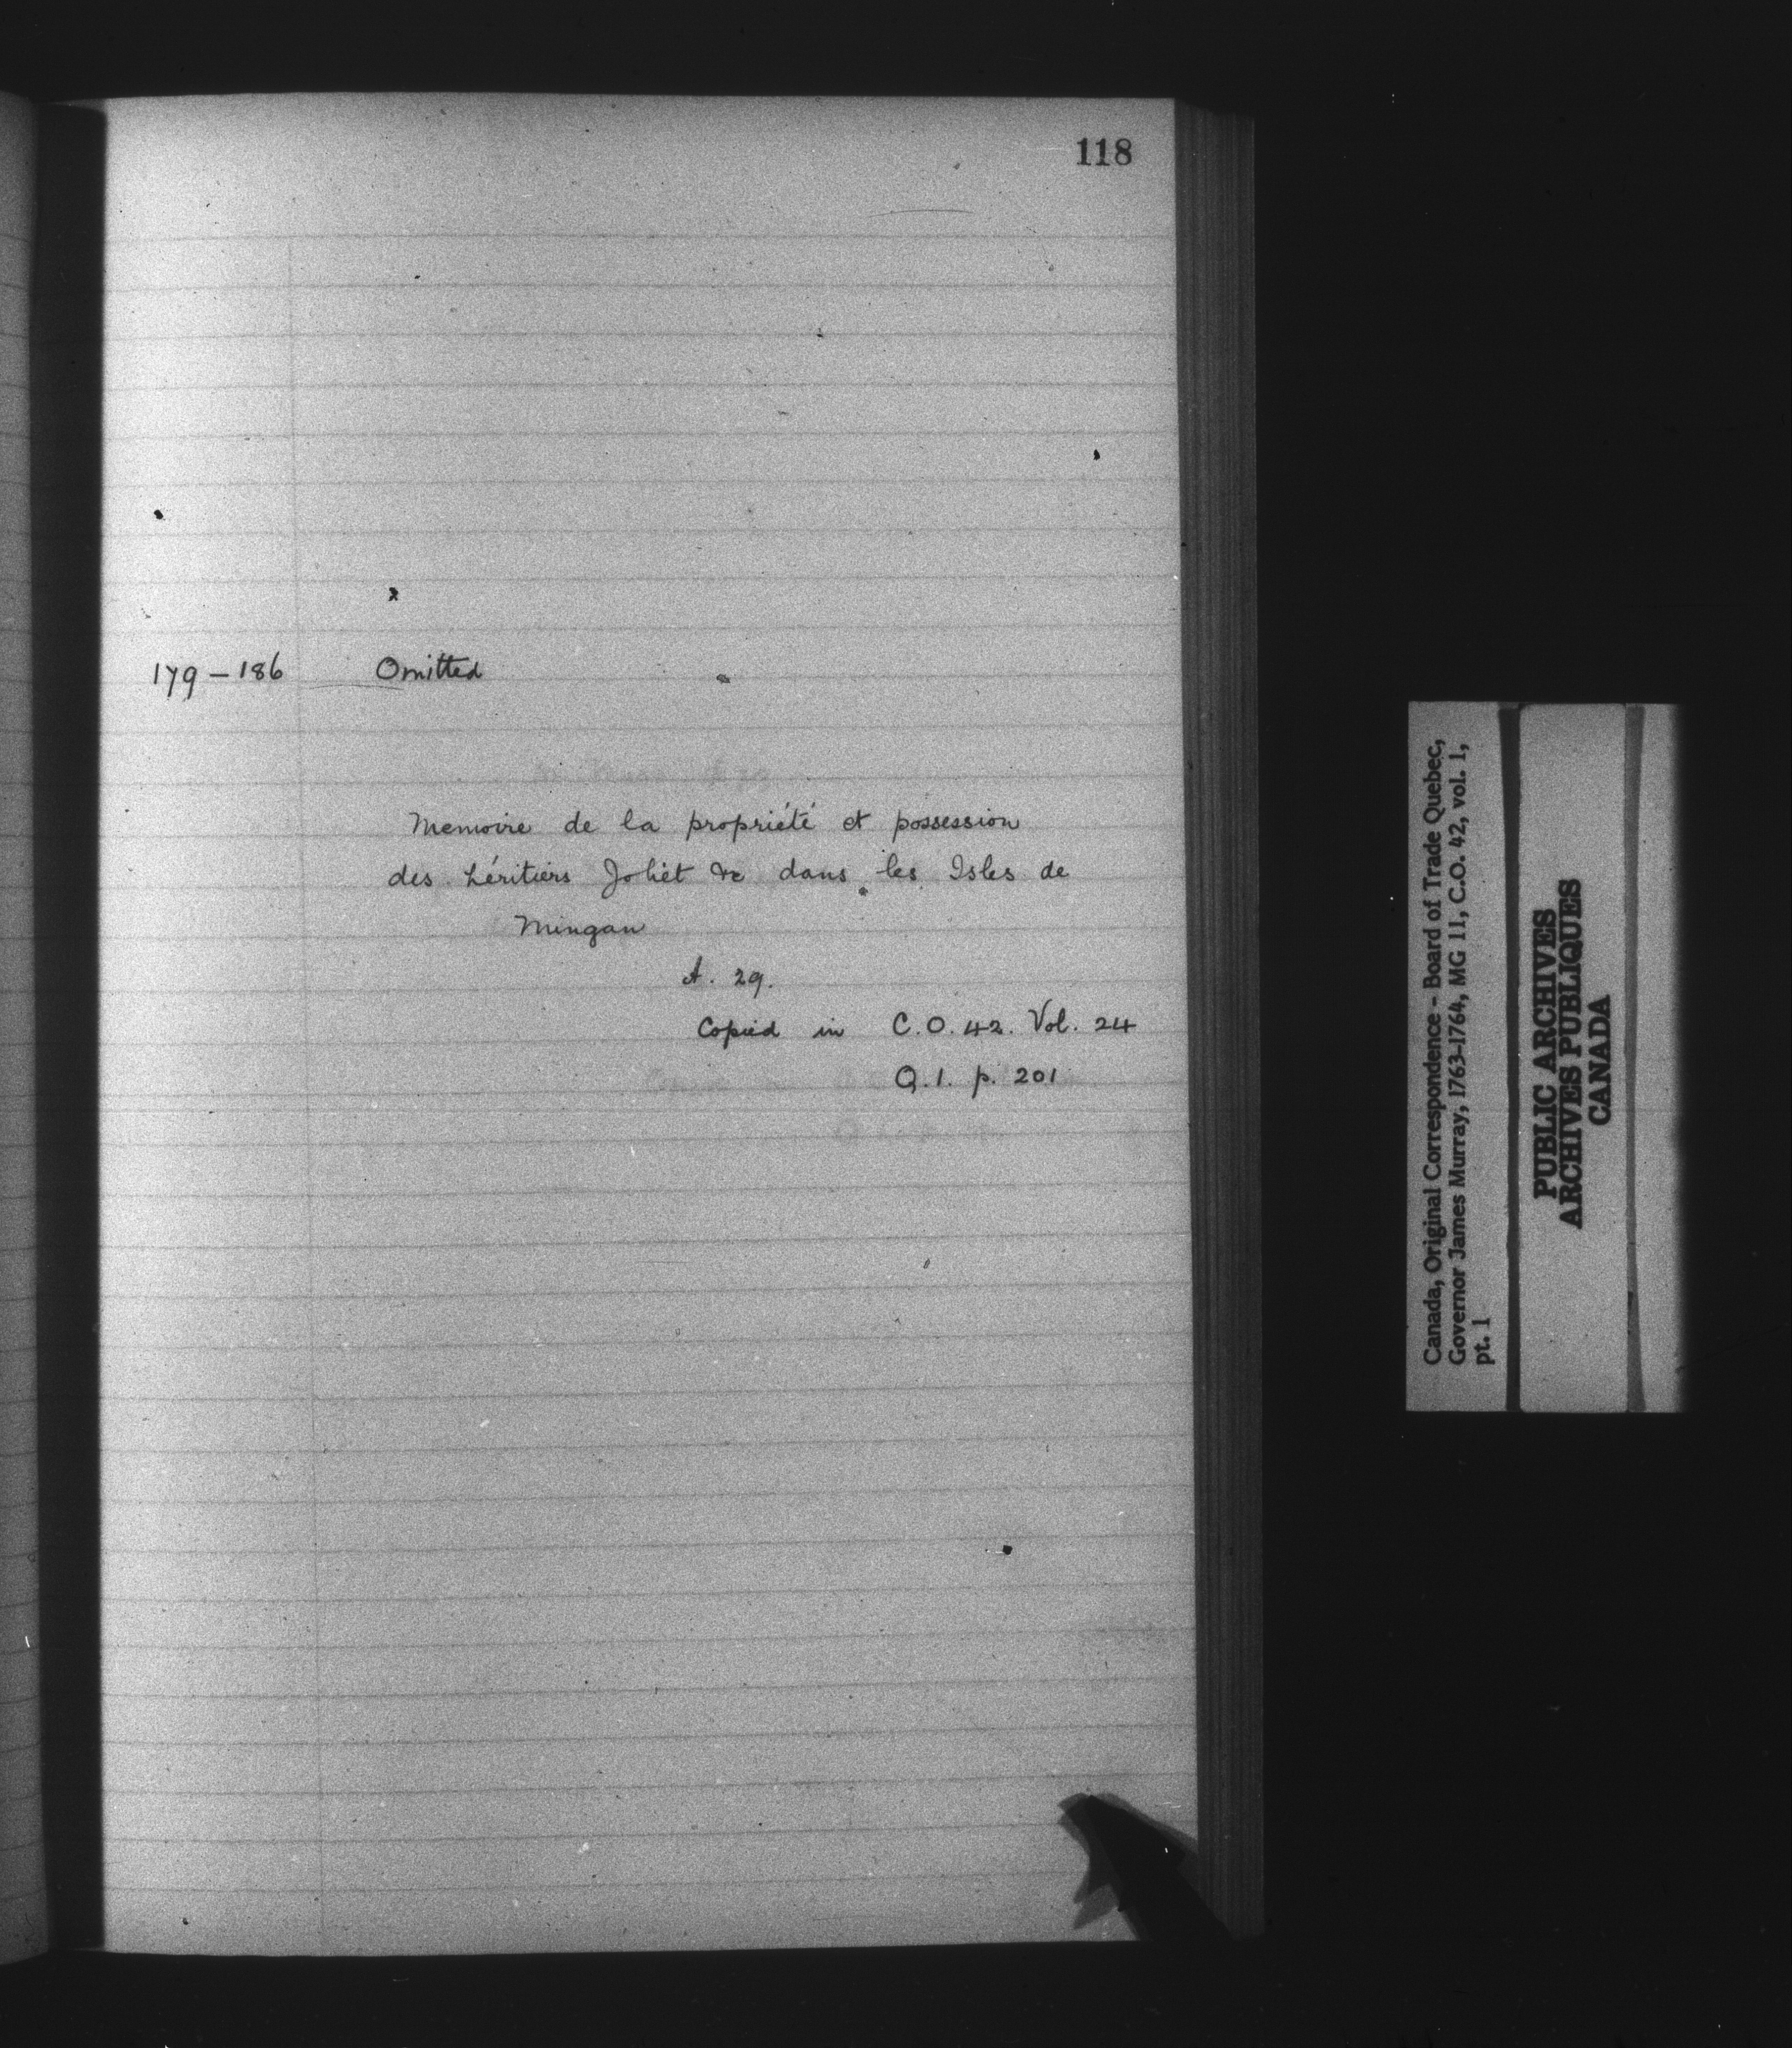 118
179 – 186 Omitted
Memoire de la propriété et possession
des héritiers Joliet &c dans les Isles de
Mingan
A. 29.
Copied in C.O. 42. Vol. 24
Q.1. p. 201
Canada, Original Correspondence - Board of Trade Quebec,
Governor James Murray, 1763-1764, MG 11, C.O. 42, vol. 1,
pt. 1
PUBLIC ARCHIVES
ARCHIVES PUBLIQUES
CANADA